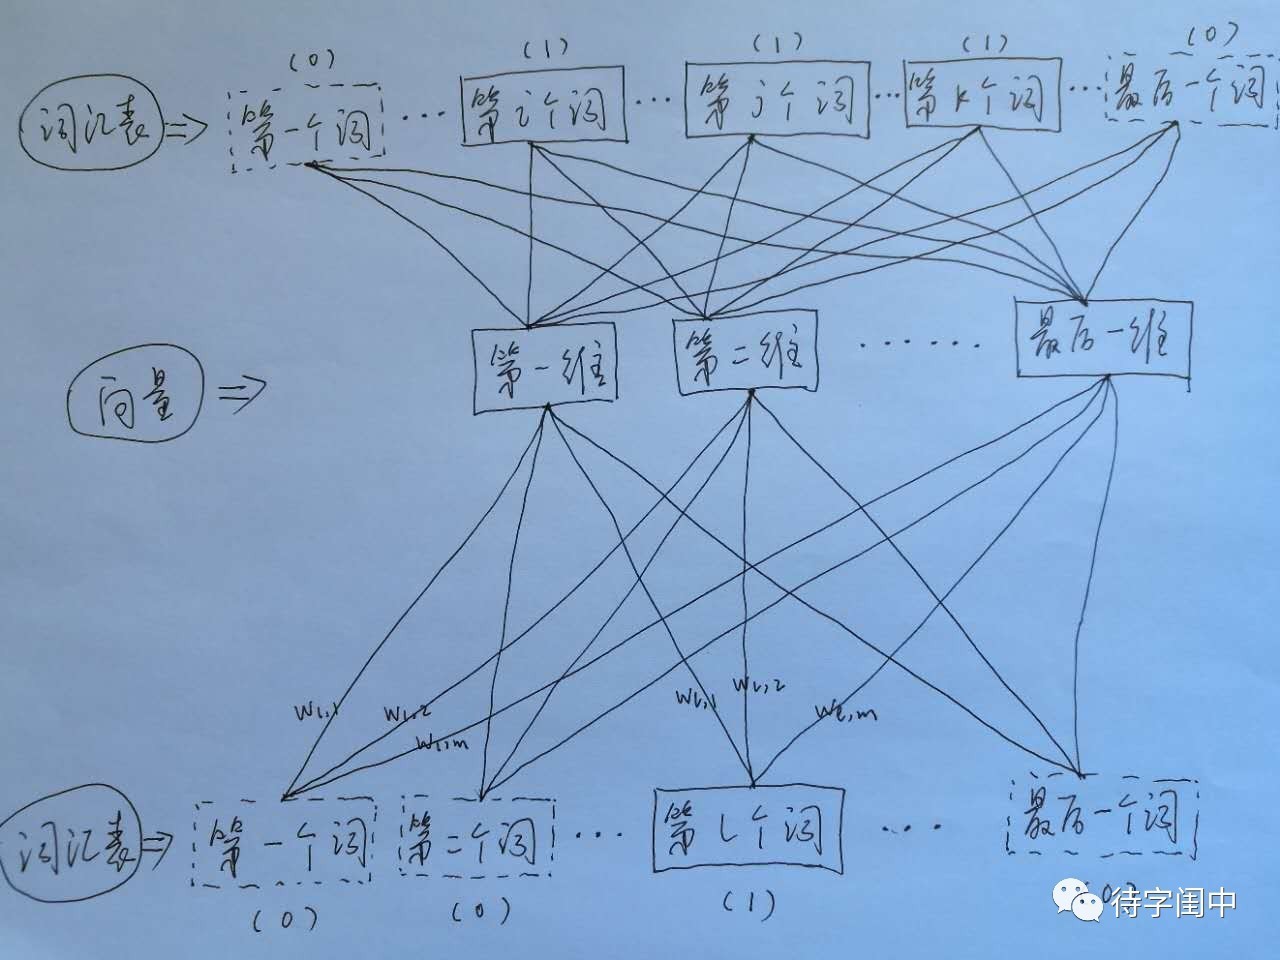 (0) (1) (1) (1) (0)
词汇表 => 第一个词 ··· 第i个词 ··· 第j个词 ··· 第k个词 ··· 最后一个词
向量 => 第一维 第二维 ······ 最后一维
W1,1 W1,2 W1,m WL,1 WL,2 WL,m
词汇表 => 第一个词 第二个词 ··· 第L个词 ···· 最后一个词
(0) (0) (1) (0)
待字闺中